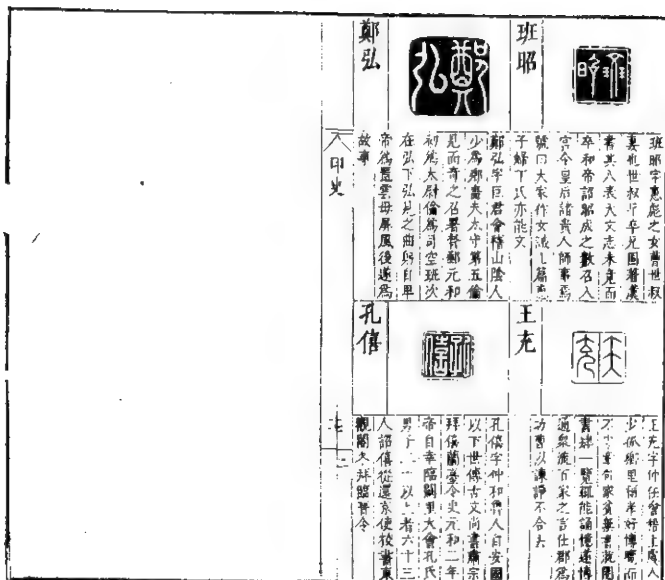 班昭
班昭
班昭字惠彪之女曹世叔
妻也世叔早卒兄固著漢
書其八表天文志未竟而
卒和帝詔昭成之數召入
宮令皇后諸貴人師事焉
號曰大家作女誡七篇
子婦丁氏亦能文
鄭弘
鄭弘
鄭弘字巨君會稽山陰人
少為鄉嗇夫太守第五倫
見而奇之召署督郵元和
初為太尉倫為司空班次
在弘下弘見之曲躬自卑
帝為置雲母屏風後遂為
故事
王充
王充
王充字仲任會稽上虞人
少孤鄉里稱孝好博覽而
不守章句家貧無書就閱
書肆一覽輒能誦憶遂博
通眾流百家之言仕郡為
功曹以諫諍不合去
孔僖
孔僖
孔僖字仲和魯人自安國
以下世傳古文尚書肅宗
拜僖蘭臺令史元和二年
帝自幸臨闕里大會孔氏
男子二十以上者六十三
人詔僖從還京使校書東
觀閣冬拜臨晉令
印史